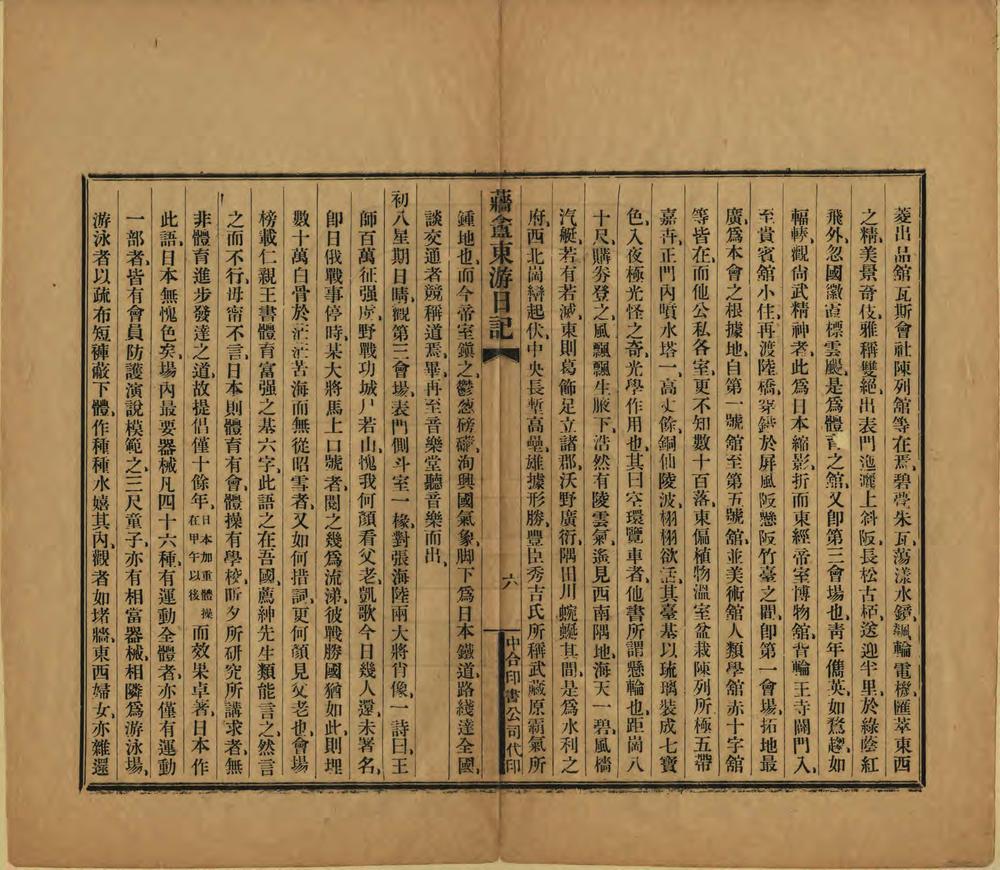 菱出品舘瓦斯會社陳列舘等在焉、碧甍朱瓦、蕩漾水鏡、飆輪電機、匯萃東西
之精美、景奇伎雅、稱雙絕、出表門迤邐上斜阪、長松古栢、送迎半里、於綠蔭紅
飛外、忽國徽直標雲颷、是爲體育之舘、又卽第三會場也、靑年儁英、如鶩趨、如
輻轃、觀尙武精神者、此爲日本縮影、折而東、經帝室博物舘、背輪王寺闢門入、
至貴賓舘小住、再渡陸橋、穿錯於屏風阪懸阪竹臺之間、卽第一會場、拓地最
廣、爲本會之根據地、自第一號舘至第五號舘、並美術舘人類學舘赤十字舘
等皆在、而他公私各室、更不知數十百落、東偏植物溫室、盆栽陳列所、極五帶
嘉卉、正門內噴水塔一、高丈餘、銅仙陵波、栩栩欲活、其臺基以琉璃裝成七寶
色、入夜極光怪之奇、光學作用也、其曰空環覽車者、他書所謂懸輪也、距崗八
十尺、購劵登之、風飄飄生腋下、浩然有陵雲氣、遙見西南隅地、海天一碧、風檣
汽艇、若有若滅、東則葛飾足立諸郡、沃野廣衍、隅田川蜿蜒其間、是爲水利之
府、西北崗巒起伏、中央長塹高壘、雄據形勝、豐臣秀吉氏所稱武藏原霸氣所
蘠盦東游日記
六
中合印書公司代印
鍾地也、而今帝室鎭之、鬱葱磅礴、洵興國氣象、脚下爲日本鐵道、路綫達全國、
談交通者競稱道焉、畢再至音樂堂聽音樂而出、
初八星期日晴、觀第三會場、表門側斗室一椽、對張海陸兩大將肖像、一詩曰、王
師百萬征强虜、野戰功城尸若山、愧我何顏看父老、凱歌今日幾人還、未署名、
卽日俄戰事停時、某大將馬上口號者、閱之幾爲流涕、彼戰勝國猶如此、則埋
數十萬白骨於茫茫苦海而無從昭雪者、又如何措詞、更何顏見父老也、會場
榜載仁親王書體育富强之基六字、此語之在吾國、薦紳先生類能言之、然言
之而不行、毋甯不言、日本則體育有會、體操有學校、昕夕所研究所講求者、無
非體育進步發達之道、故提倡僅十餘年、日本加重體操在甲午以後而效果卓著、日本作
此語、日本無愧色矣、場內最要器械凡四十六種、有運動全體者、亦僅有運動
一部者、皆有會員防護演說模範之、三尺童子、亦有相當器械、相隣爲游泳場、
游泳者以疏布短褲蔽下體、作種種水嬉其內、觀者如堵牆、東西婦女亦雜還